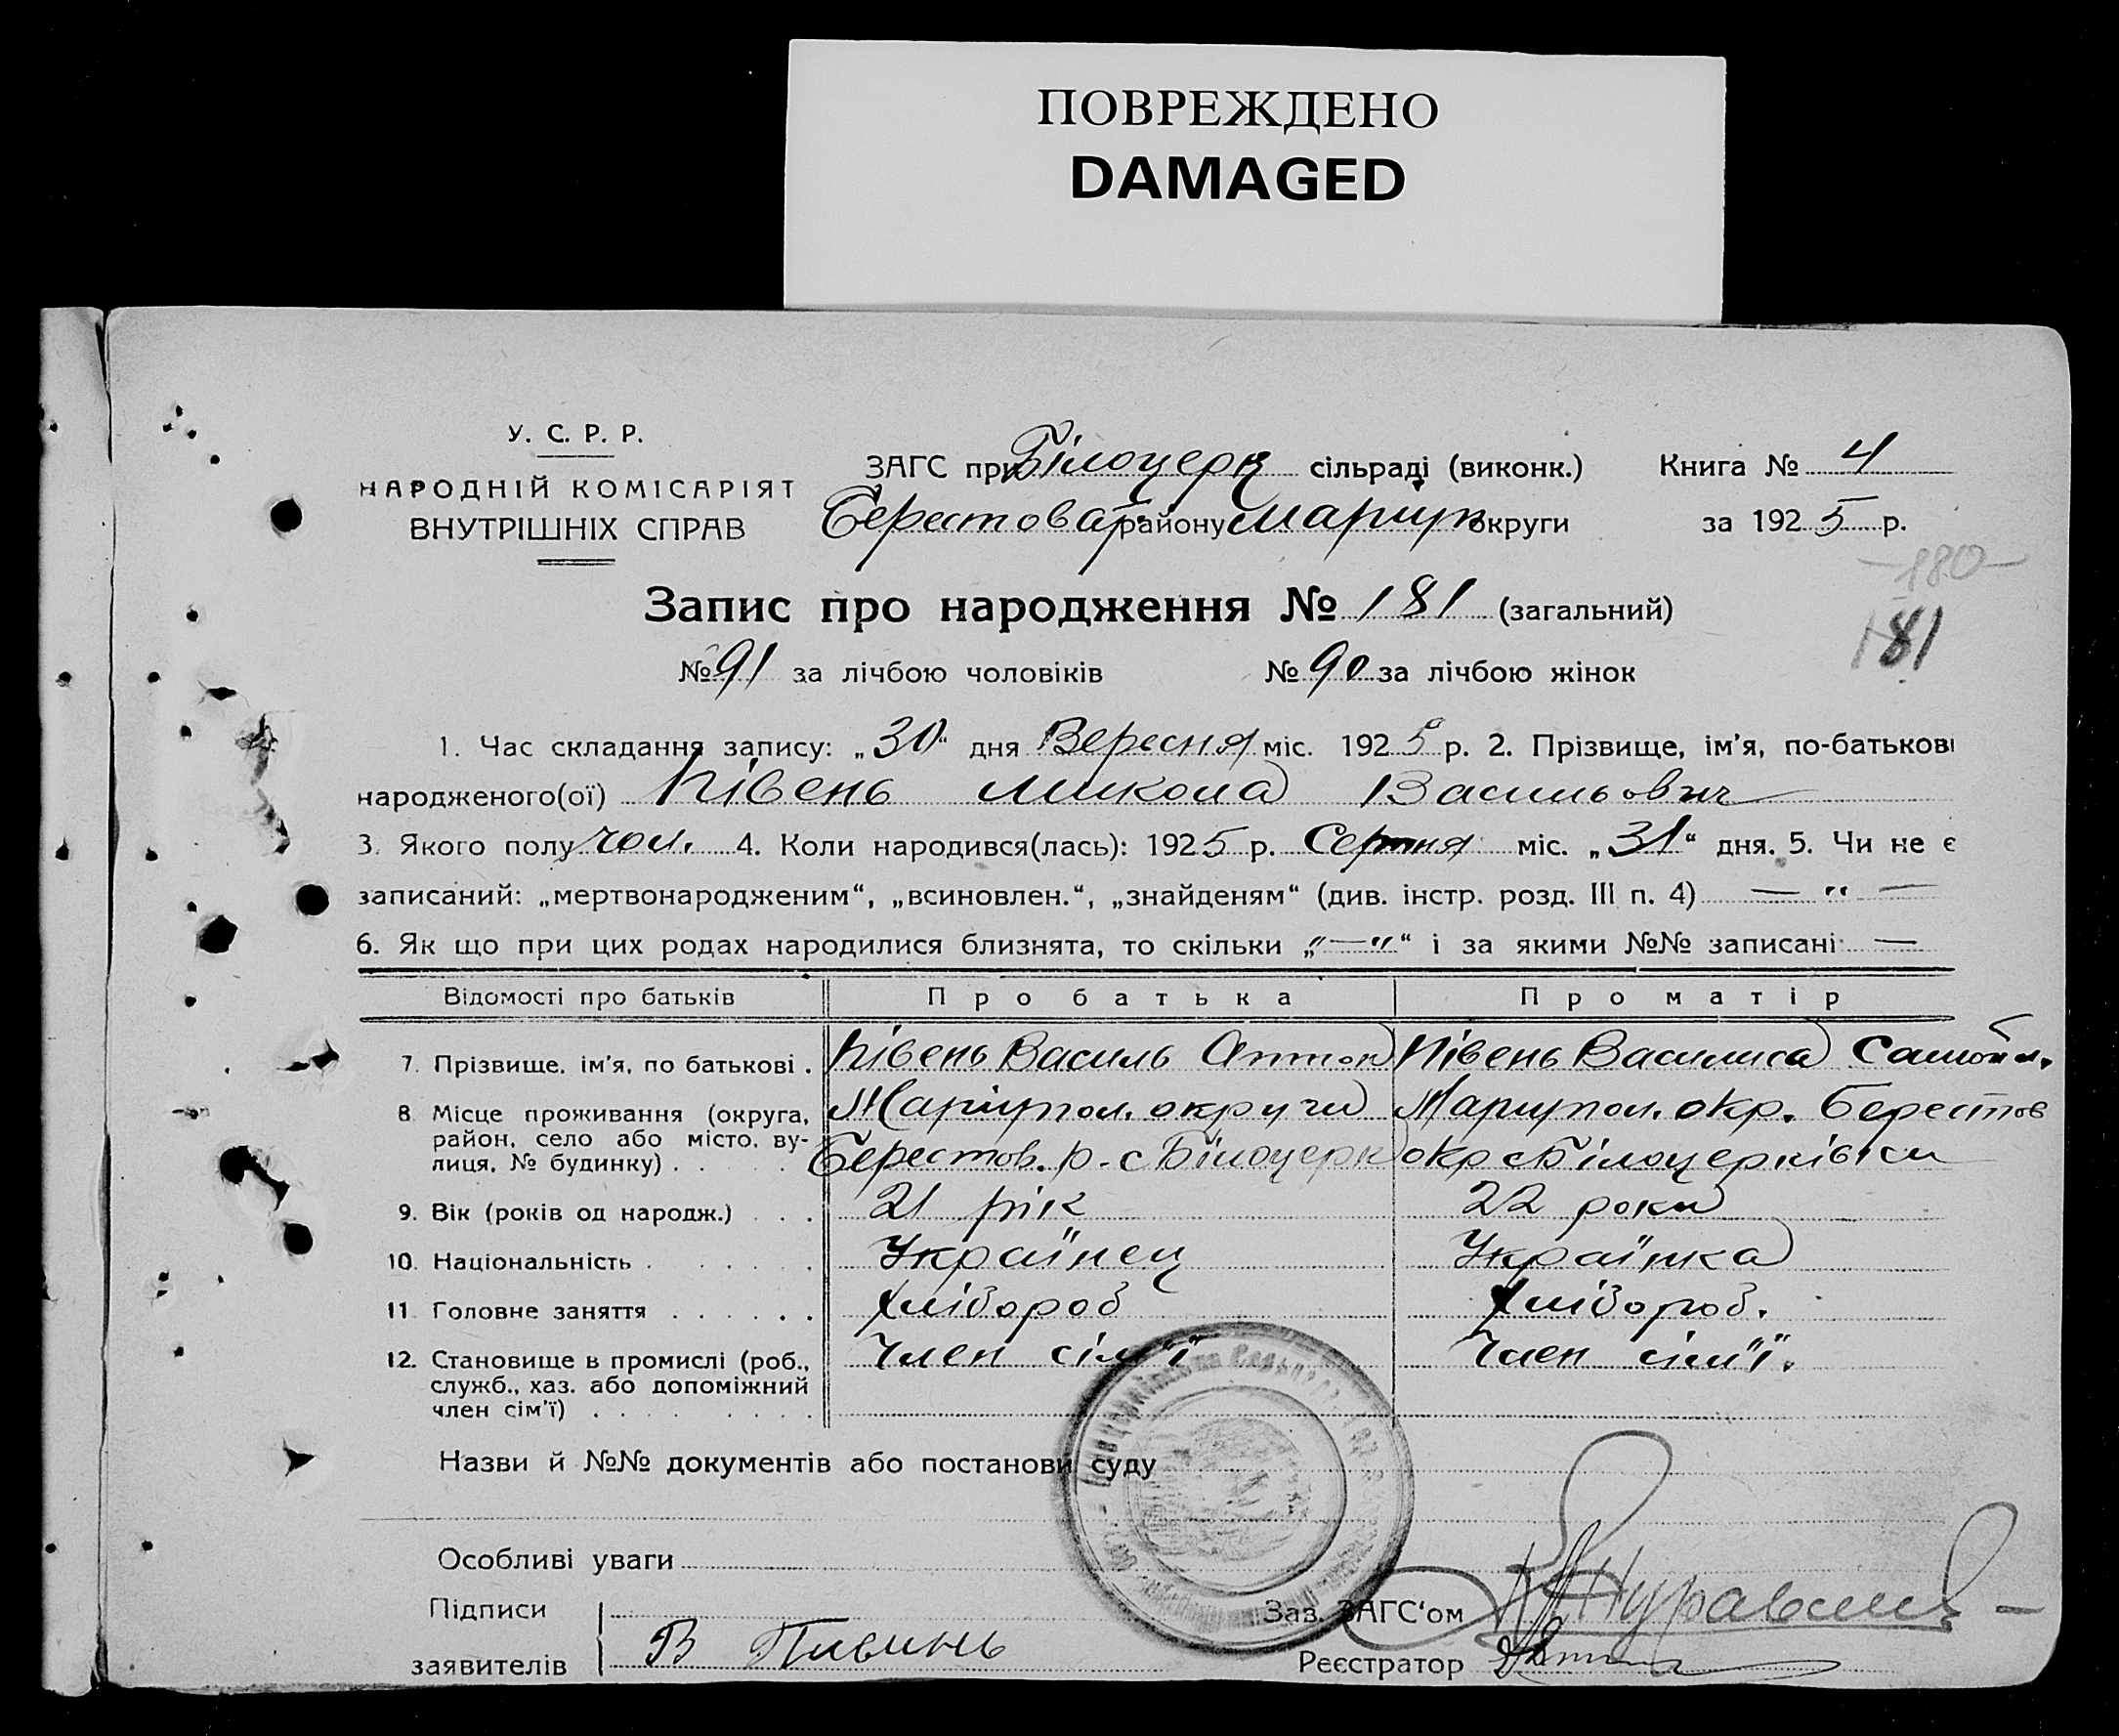 ПОВРЕЖДЕНО
DAMAGED
У. С. Р. Р.
НАРОДНІЙ КОМІСАРІЯТ
ВНУТРІШНІХ СПРАВ
ЗАГС при Білоцерк сільраді (виконк.)
Берестовай району Маріуп округи
Книга № 4
за 1925 р.
-180-
181
Запис про народження № 181 (загальний)
№ 91 за лічбою чоловіків № 90 за лічбою жінок
1. Час складання запису: „30“ дня Вересня міс. 1925 р. 2. Прізвище, ім’я, по-батькові
народженого(ої) Півень Микола Васильович
3. Якого полу чол. 4. Коли народився(лась): 1925 р. Серпня міс. „31“ дня. 5. Чи не є
записаний: „мертвонародженим“, „всиновлен.“, „знайденям“ (див. інстр. розд. III п. 4) — “ —
6. Як що при цих родах народилися близнята, то скільки „—“ і за якими №№ записані —
Відомості про батьків Про батька Про матір
7. Прізвище, ім’я, по батькові . Півень Василь Антон Півень Василиса Самойл.
8. Місце проживання (округа, Маріупол. округи Маріупол. окр. Берестов
район, село або місто, ву-
лиця, № будинку) . . . . Берестов. р. с Білоцерк окр с Білоцерківки
9. Вік (років од народж.) . . . 21 рік 22 роки
10. Національність . . . . . . Українец Українка
11. Головне заняття . . . . . . Хлібороб Хлібороб.
12. Становище в промислі (роб., Член сім’ї Член сім’ї.
служб., хаз. або допоміжний
член сім’ї) . . . . . . .
Назви й №№ документів або постанови суду
Особливі уваги
Підписи
заявителів В Пивинь
Зав. ЗАГС‘ом
Реєстратор